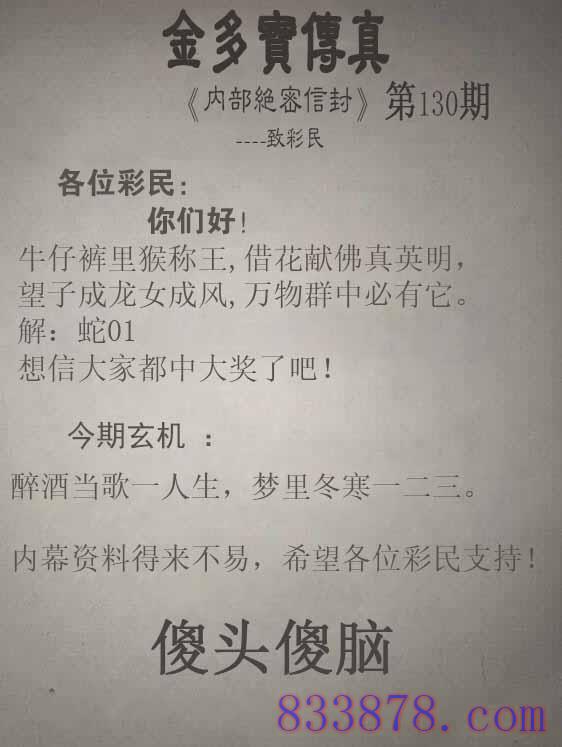 金多寳傳真
《内部絶密信封》第130期
----致彩民
各位彩民:
你们好!
牛仔裤里猴称王,借花献佛真英明,
望子成龙女成风,万物群中必有它。
解：蛇01
想信大家都中大奖了吧!
今期玄机 ：
醉酒当歌一人生，梦里冬寒一二三。
内幕资料得来不易，希望各位彩民支持!
傻头傻脑
833878.com